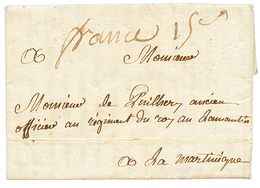 france 15
a Monsieur
Monsieur de ancien
officier au régiment du roy au
a La martinique